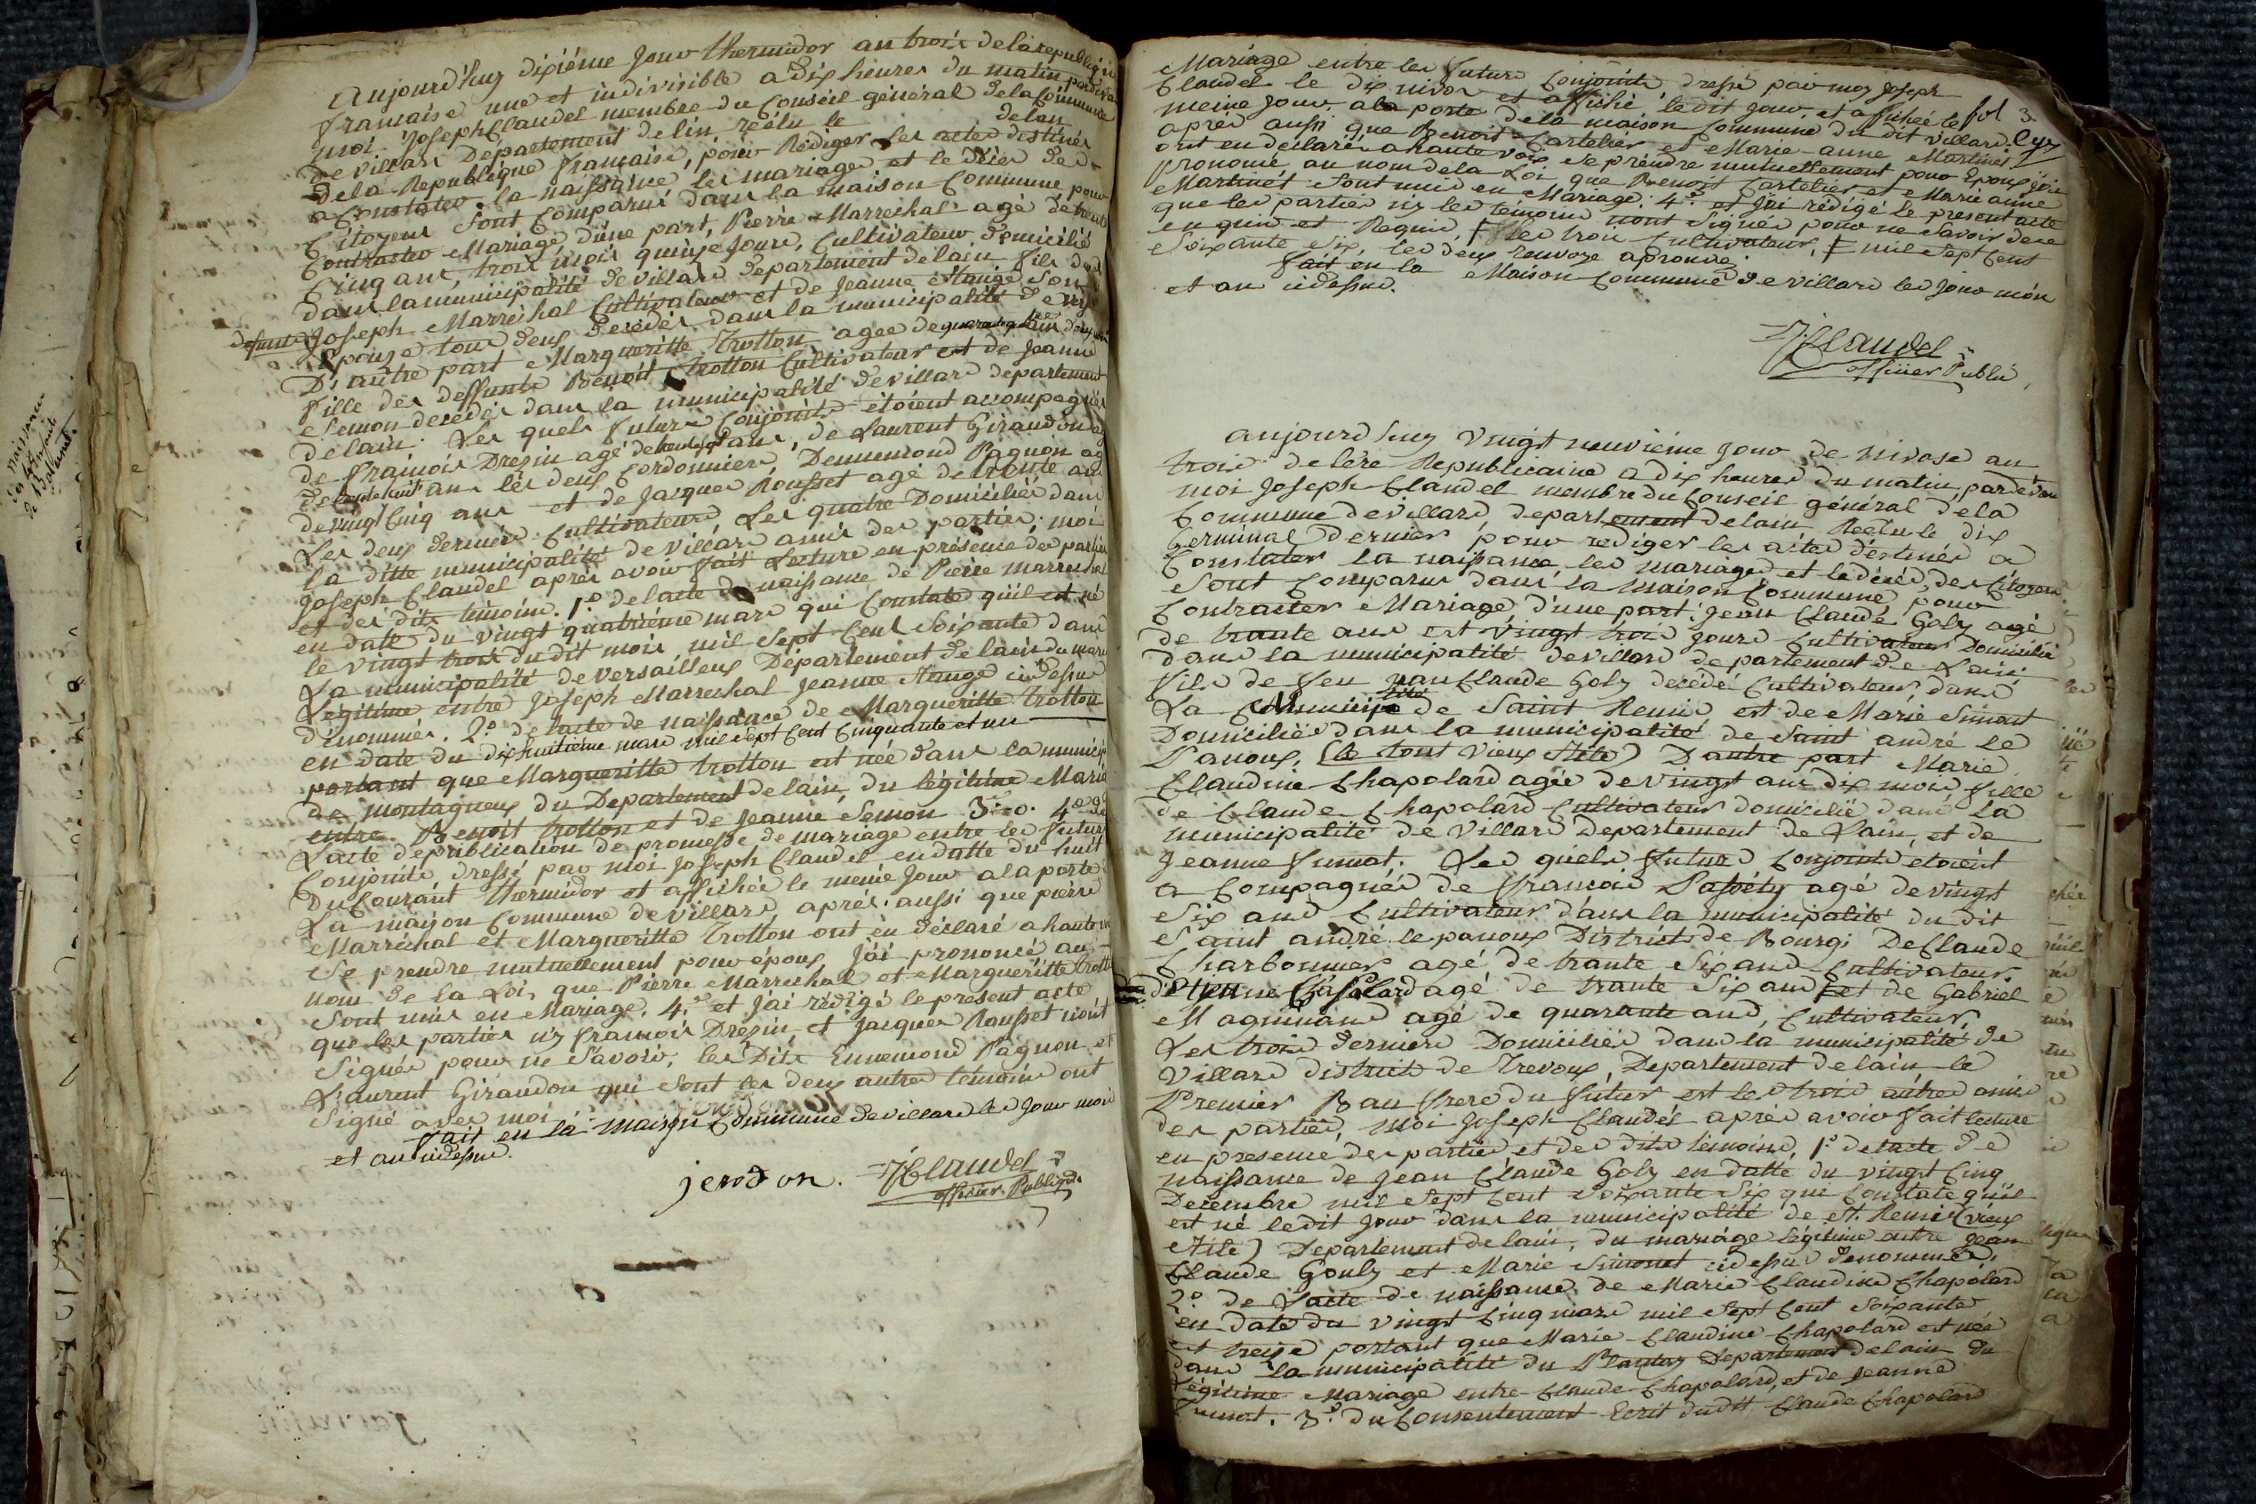 aujourd'huy dixiéme jour thermidor an trois de la republique
francaise une et indivisible a dix heures du matin pardevan
moi Joseph Claudel membre du Conseil général de la Commune
de villars Département de lin réélu le de lan
de la Republique francaise, pour Rédiger les actes destinés
a Constater la naissance les mariages et le décès des
Citoyens sont Comparus dans la maison Commune pour
Contracter Mariage d'une part, Pierre Marrechal agé de trente
Cinq ans, trois mois quinze jours, Cultivateur domicilié
dans la municipalité de villars département de lain fils de
defunts Joseph Marrechal Cultivateur et de Jeanne Stange son
Epouze tous deux decédés dans la municipalité de
D'autre part Margueritte Trotton agée de quarante
fille des deffunts Benoit Trotton Cultivateur et de Jeanne
Semon decédés dans la municipalité de villars departement
de lain. Les quels futurs Conjoints étoient accompagnés
de francois Drepin agé de ans, de Laurent Giraudon
de ans les deux Cordonniers, Dennemond Pagnon
de vingt Cinq ans et de Jacques Rousset agé de trente ans
Les deux derniers Cultivateurs Les quatre Domiciliés dans
la ditte municipalité de villars amis des parties. moi
Joseph Claudel après avoir fait Lecture en présence des parties
et des dits témoins. 1.° de lacte de naissance de Pierre marrechal
en date du vingt quatrième mars qui Constate qu'il est né
le vingt trois du dit mois mil sept Cent soixante dans
La municipalité de versailleux Département de lain du mariage
Légitime entre Joseph Marrechal Jeanne Stange ci dessus
dénommés. 2.° de lacte de naissance de Margueritte Trotton
en date du dix huitiéme mars mil sept Cent Cinquante et un
portant que Margueritte trotton est née dans la municip
de montagneux du Departement de lain, du légitime Mariage
entre Benoit trotton et de Jeanne Semon 3.° 4.° de
Lacte de publication de promesse de mariage entre les futurs
Conjoints dressé par moi Joseph Claudel en datte du huit
du Courant thermidor et affichée le meme jour a la porte
La maison Commune de villars après aussi que pierre
Marrechal et Margueritte Trotton ont eu déclaré a haute
se prendre mutuellement pour époux, J'ai prononcé au
nom de la Loi, que Pierre Marrechal et Margueritte trotton
sont unis en Mariage. 4.° et J'ai rédigé le present acte
que les parties ny francois Drepin et Jacques Rousset n'ont
Signés pour ne savoir, les Dits Ennemond Pagnon et
Laurent Giraudon qui sont les deux autre témoins ont
signé avec moi
fait en la maison Commune de villars les Jour mois
et an cidessus.
jerodon. JClaudel
officier Public
Mariage entre les futurs Conjoints dressé par moy Joseph
Claudel le dix nivos et affiché le dit jour, et affichée le fol 3
meme jour a la porte de la maison Commune du dit villard.
après aussi que Benoit Cartelier et Marie-anne Martinet
ont eu déclarés a haute voix se prendre mutuellement pour Epoux J'ai
prononcé au nom de la Loi que Benoit Cartelier et Marie anne
Martinet sont unis en Mariage. 4.° et J'ai rédigé le present acte
que les parties ny les témoins n'ont signés pour ne savoir de ce
enquis et Requis, les trois Cultivateurs, mil sept Cent
soixante six, les deux Renvoye aprouvé.
fait en la Maison Commune de villars les jour mois
et an cidessus.
JClaudel
officier Public
aujourd huy vingt neuviéme jour de nivose an
trois de lère Republicaine a dix heures du matin, pardevan
moi Joseph Claudel membre du Conseil général de la
Commune de villars, departement de lain Reélu le dix
Germinal dernier pour rediger les actes déstinés a
Constater la naissance les mariages et le décès des Citoyens
sont Comparus dans la maison Commune pour
Contracter Mariage d'une part: Jean Claude Goly agé
de trante ans et vingt trois jours Cultivateur Domicilié
dans la municipalité de villars departement de Lain,
fils de feu Jean Claude Goly decédé Cultivateur dans
La Municipalité de Saint Remis et de Marie Simont
Domiciliée dans la municipalité de Saint andré le
Panoux, (le tout vieux stile) D'autre part Marie
Claudine Chapolard agée de vingt ans dix mois, fille
de Claude Chapolard Cultivateur domicilié dans La
municipalité de Villars Departement de Lain, et de
Jeanne. Les quels futurs Conjoints etoient
a Compagnés de francois Passéty agé de vingt
six ans Cultivateur dans la municipalité du dit
Saint andré le panoux Districts de Bourg; De Claude
Charbonnier agé de trante Six ans Cultivateur,
Chapolard agé de trante Six ans et de Gabriel
Magninand agé de quarante ans, Cultivateur,
Les trois derniers Domiciliés dans la municipalité de
Villars district de Trevoux, Departement de lain le
Premier Bau frere du futur et les trois autres amis
des parties, moi Joseph Claudel après avoir fait lecture
en presence des parties et des dits témoins, 1.° de lacte de
naissance de Jean Claude Goly en datte du vingt Cinq
Decembre mil sept Cent soixante six qui Constate qu'il
est né ledit jour dans la municipalité de St. Remis (vieux
stile) Departement de lain, du mariage légitime entre Jean
Claude Gouly et Marie Simonet cidessus dénommés,
2.° de L'acte de naissance de Marie Claudine Chapolard
en date du vingt Cinq mars mil sept Cent soixante
et treize portant que Marie Claudine Chapolard est née
dans la municipalité du Plantay Departement de lain du
Légitime Mariage entre Claude Chapolard, et de Jeanne
3.° du Consentement Ecrit dudit Claude Chapolard